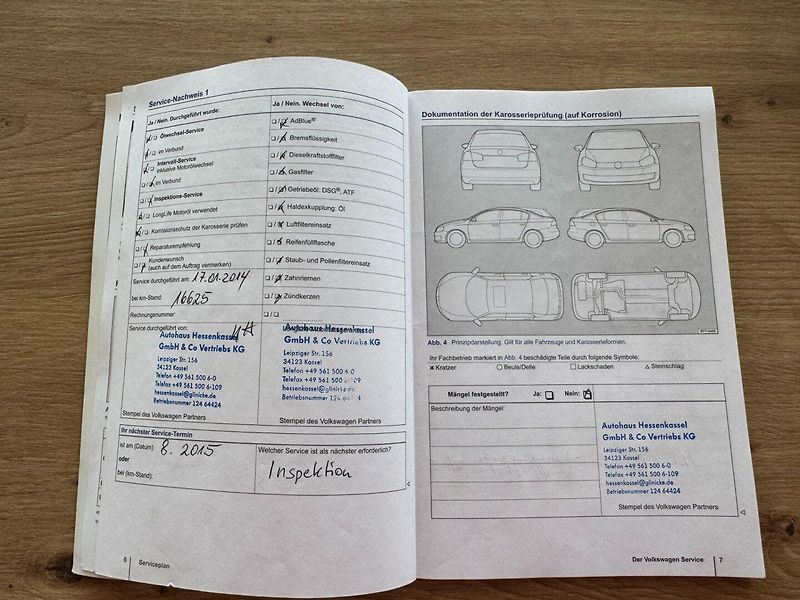 Service-Nachweis 1
Ja / Nein. Durchgeführt wurde:
Ölwechsel-Service
im Verbund
Intervall-Service
inklusive Motorölwechsel
im Verbund
Inspektions-Service
LongLife Motoröl verwendet
Korrosionsschutz der Karosserie prüfen
Reparaturempfehlung
Kundenwunsch
(auch auf dem Auftrag vermerken)
Service durchgeführt am: 17.01.2014
bei km-Stand: 16625
Rechnungsnummer:
Service durchgeführt von:
Autohaus Hessenkassel
GmbH & Co Vertriebs KG
Leipziger Str. 156
34123 Kassel
Telefon +49 561 500 6-0
Telefax +49 561 500 6-109
hessenkassel@glinicke.de
Betriebsnummer 124 64424
Stempel des Volkswagen Partners
Ja / Nein. Wechsel von:
AdBlue®
Bremsflüssigkeit
Dieselkraftstofffilter
Gasfilter
Getriebeöl: DSG®, ATF
Haldexkupplung: Öl
Luftfiltereinsatz
Reifenfüllflasche
Staub- und Pollenfiltereinsatz
Zahnriemen
Zündkerzen
Autohaus Hessenkassel
GmbH & Co Vertriebs KG
Leipziger Str. 156
34123 Kassel
Telefon +49 561 500 6-0
Telefax +49 561 500
hessenkassel@glinicke.de
Betriebsnummer 124
Stempel des Volkswagen Partners
Ihr nächster Service-Termin
ist am (Datum): 8. 2015
oder
bei (km-Stand):
Welcher Service ist als nächster erforderlich?
Inspektion
6 Serviceplan
Dokumentation der Karosserieprüfung (auf Korrosion)
Abb. 4 Prinzipdarstellung. Gilt für alle Fahrzeuge und Karosserieformen.
Ihr Fachbetrieb markiert in Abb. 4 beschädigte Teile durch folgende Symbole:
Kratzer Beule/Delle Lackschaden Steinschlag
Mängel festgestellt? Ja: Nein:
Beschreibung der Mängel:
Autohaus Hessenkassel
GmbH & Co Vertriebs KG
Leipziger Str. 156
34123 Kassel
Telefon +49 561 500 6-0
Telefax +49 561 500 6-109
hessenkassel@glinicke.de
Betriebsnummer 124 64424
Stempel des Volkswagen Partners
Der Volkswagen Service 7